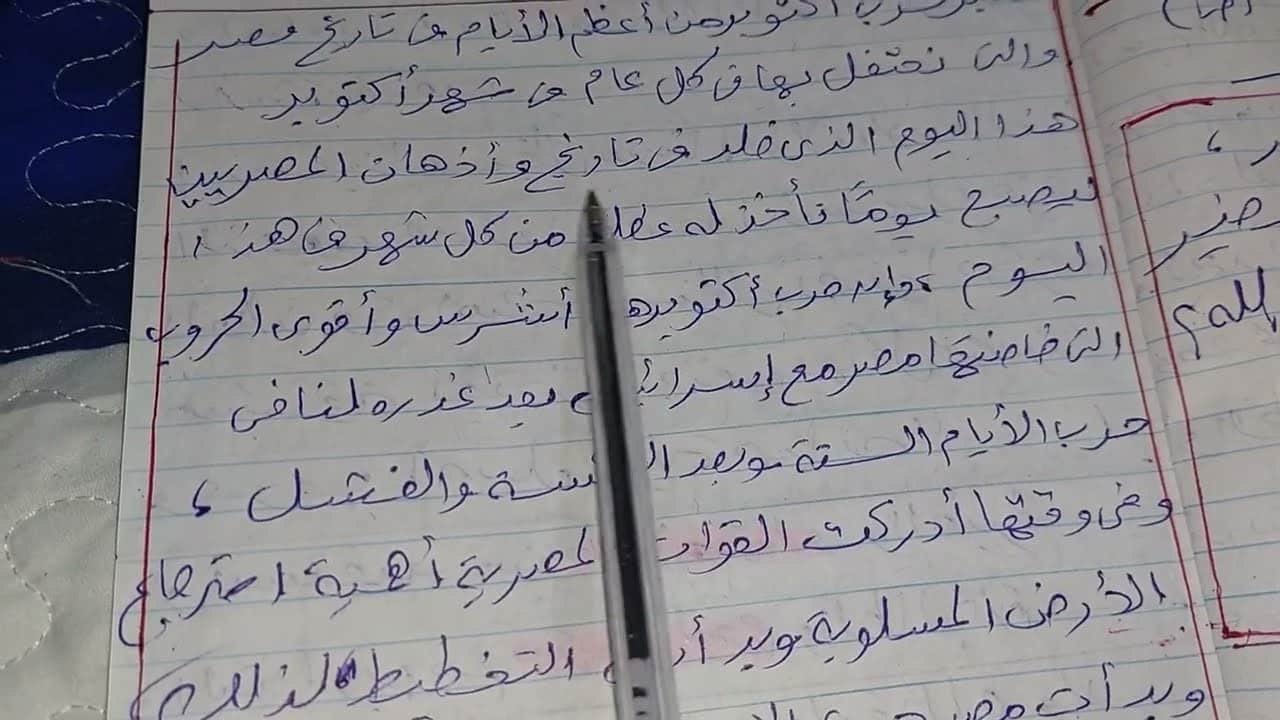 حرب أكتوبر من أعظم الأيام فى تاريخ مصر
والتى نحتفل بها فى كل عام فى شهر أكتوبر
هذا اليوم الذى خلد فى تاريخ وأذهان المصريين
ليصبح يومًا نأخذ له عطلة من كل شهر فى هذا
اليوم ، وإن حرب أكتوبر أشرس وأقوى الحروب
التى خاضتها مصر مع إسرائيل بعد غدره لنا فى
حرب الأيام الستة وبعد والفشل ،
وفى وقتها أدركت القوات المصرية أهمية استرجاع
الأرض المسلوبة وبدأ التخطيط لذلك
وبدأت